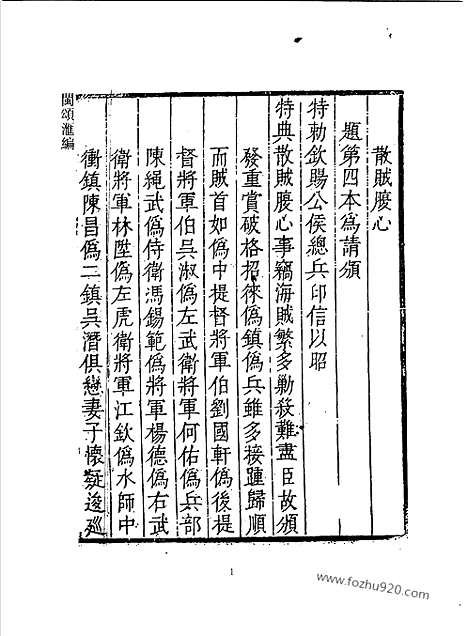 散賊腹心
題第四本為請頒
特勅欽賜公侯總兵印信以昭
特典散賊腹心事竊海賊繁多勦殺難盡臣故頒
發重賞破格招徠偽鎮偽兵雖多接踵歸順
而賊首如偽中提督將軍伯劉國軒偽後提
督將軍伯吳淑偽左武衛將軍何佑偽兵部
陳繩武偽侍衛馮錫範偽將軍楊德偽右武
衛將軍林陞偽左虎衛將軍江欽偽水師中
衝鎮陳昌偽二鎮吳潛俱戀妻子懷疑逡廵
閩頌滙編
1
www.fozhu920.com